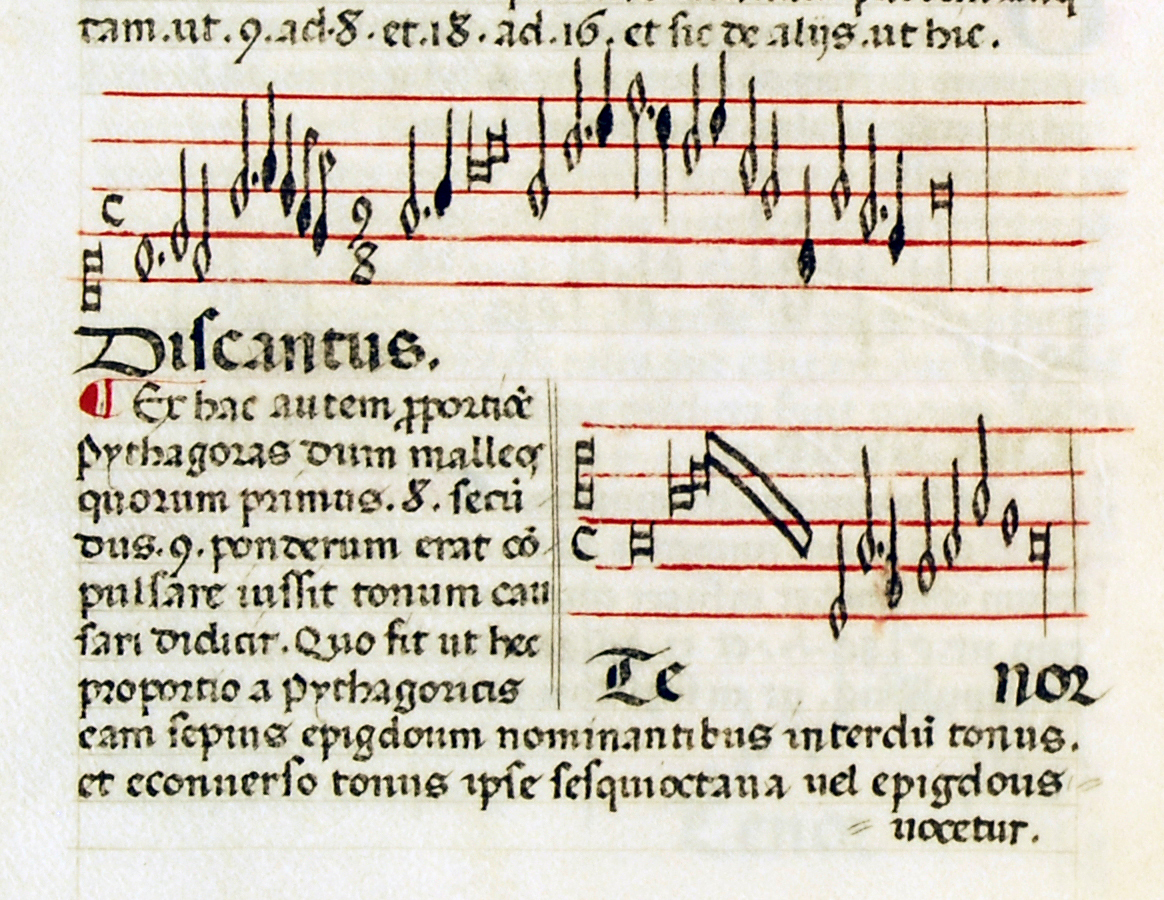 tam.ut.9.ad.8.et.18.ad.16.et sic de alijs.ut hic.
C
9
8
Discantus.
¶ Ex hac autem ꝓportiõe
Pythagoras dum malleoꝝ
quorum primus.8.secũ
dus.9.ponderum erat cõ
pulsare iussit tonum cau
sari didicit.Quo fit ut hec
proportio a pythagoricis
C
Te nor
eam sepius epigdoum nominantibus interdũ tonus.
et econuerso tonus ipse sesquioctaua uel epigdous
uocetur.